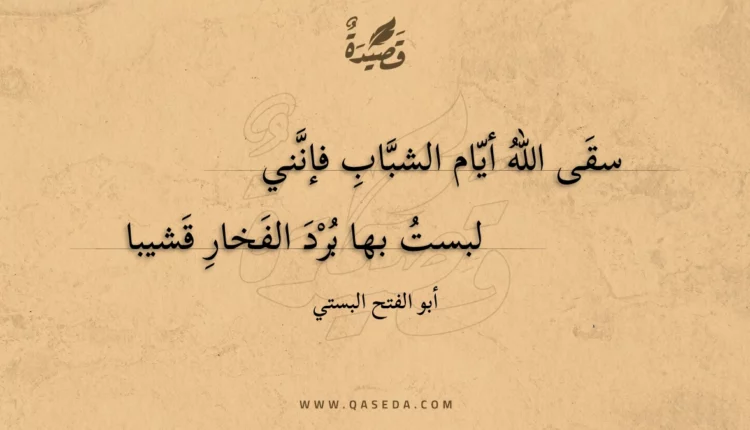 قَصِيْدَةٌ
سقَى اللهُ أيّام الشبَّابِ فإنَّني
لبستُ بها بُرْدَ الفَخارِ قَشيبا
أبو الفتح البستي
WWW.QASEDA.COM